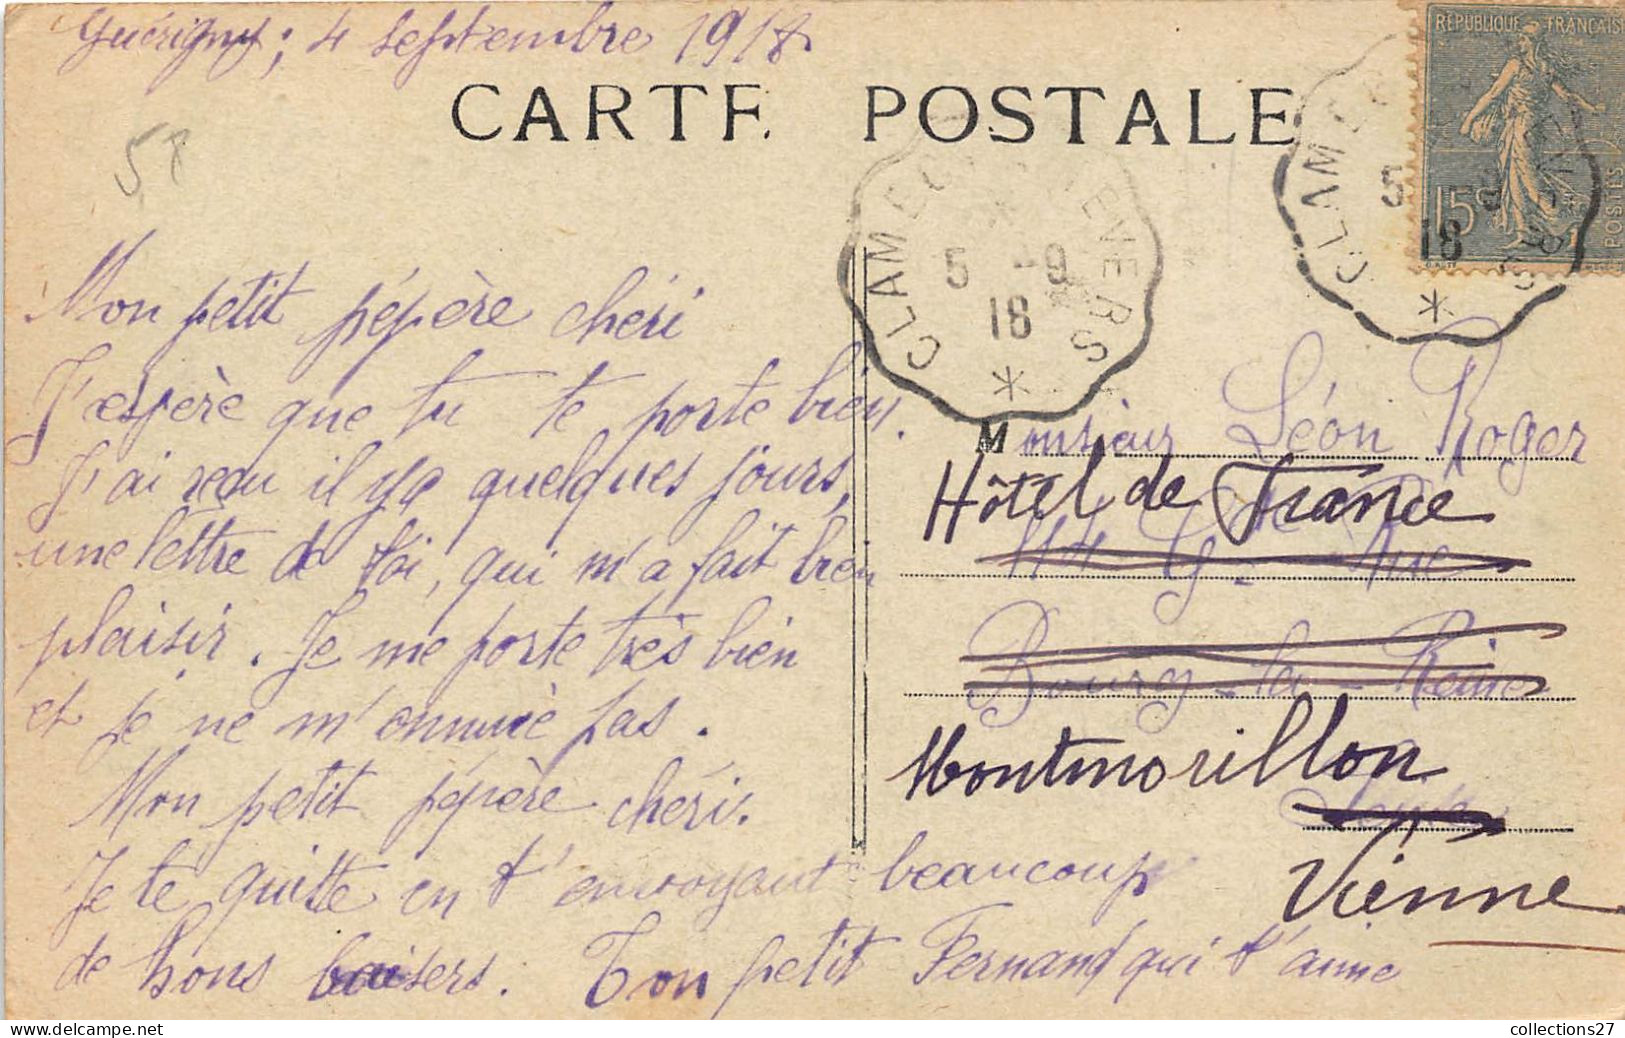 Guérigny; 4 Septembre 1918
CARTE POSTALE
58
RÉPUBLIQUE FRANÇAISE
15c
POSTES
CLAMECY NEVERS
5 -9
18
CLAMEC NEVERS
5 9
18
Mon petit pépère chéri
J'espère que tu te porte bien.
J'ai reçu il ya quelques jours,
une lettre de toi, qui m'a fait bien
plaisir. Je me porte très bien
et je ne m'ennuie pas.
Mon petit pépère chéris.
Je te quitte en t'envoyant beaucoup
de bons baisers. Ton petit Fernand qui t'aime
Monsieur Léon Roger
Hôtel de France
114 Gde Rue
Bourg-la-Reine
Montmorillon
Seine
Vienne
collections27